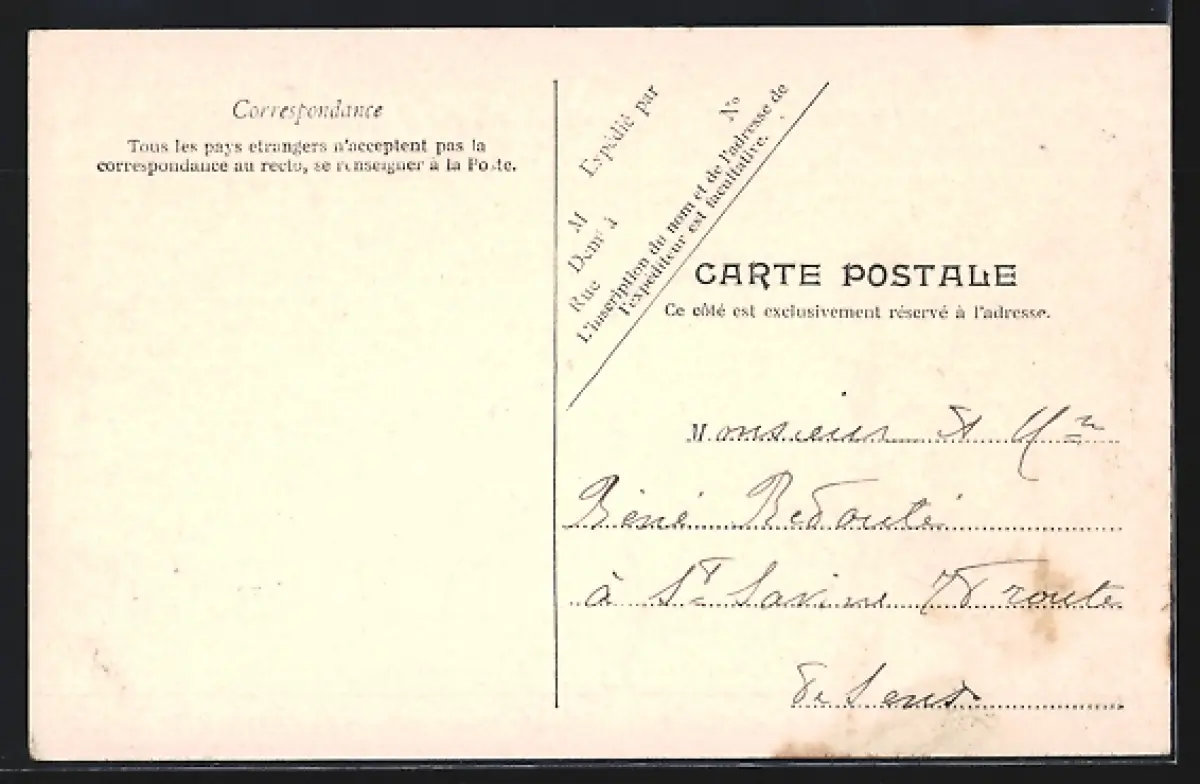 Correspondance
Tous les pays étrangers n'acceptent pas la
correspondance au recto, se renseigner à la Poste.
Expédié par
M
Dom à
Rue
No
L'inscription du nom et de l'adresse de
l'expéditeur est facultative.
CARTE POSTALE
Ce côté est exclusivement réservé à l'adresse.
Monsieur et
Réné Redouté
à Ste Savine route
de Sens